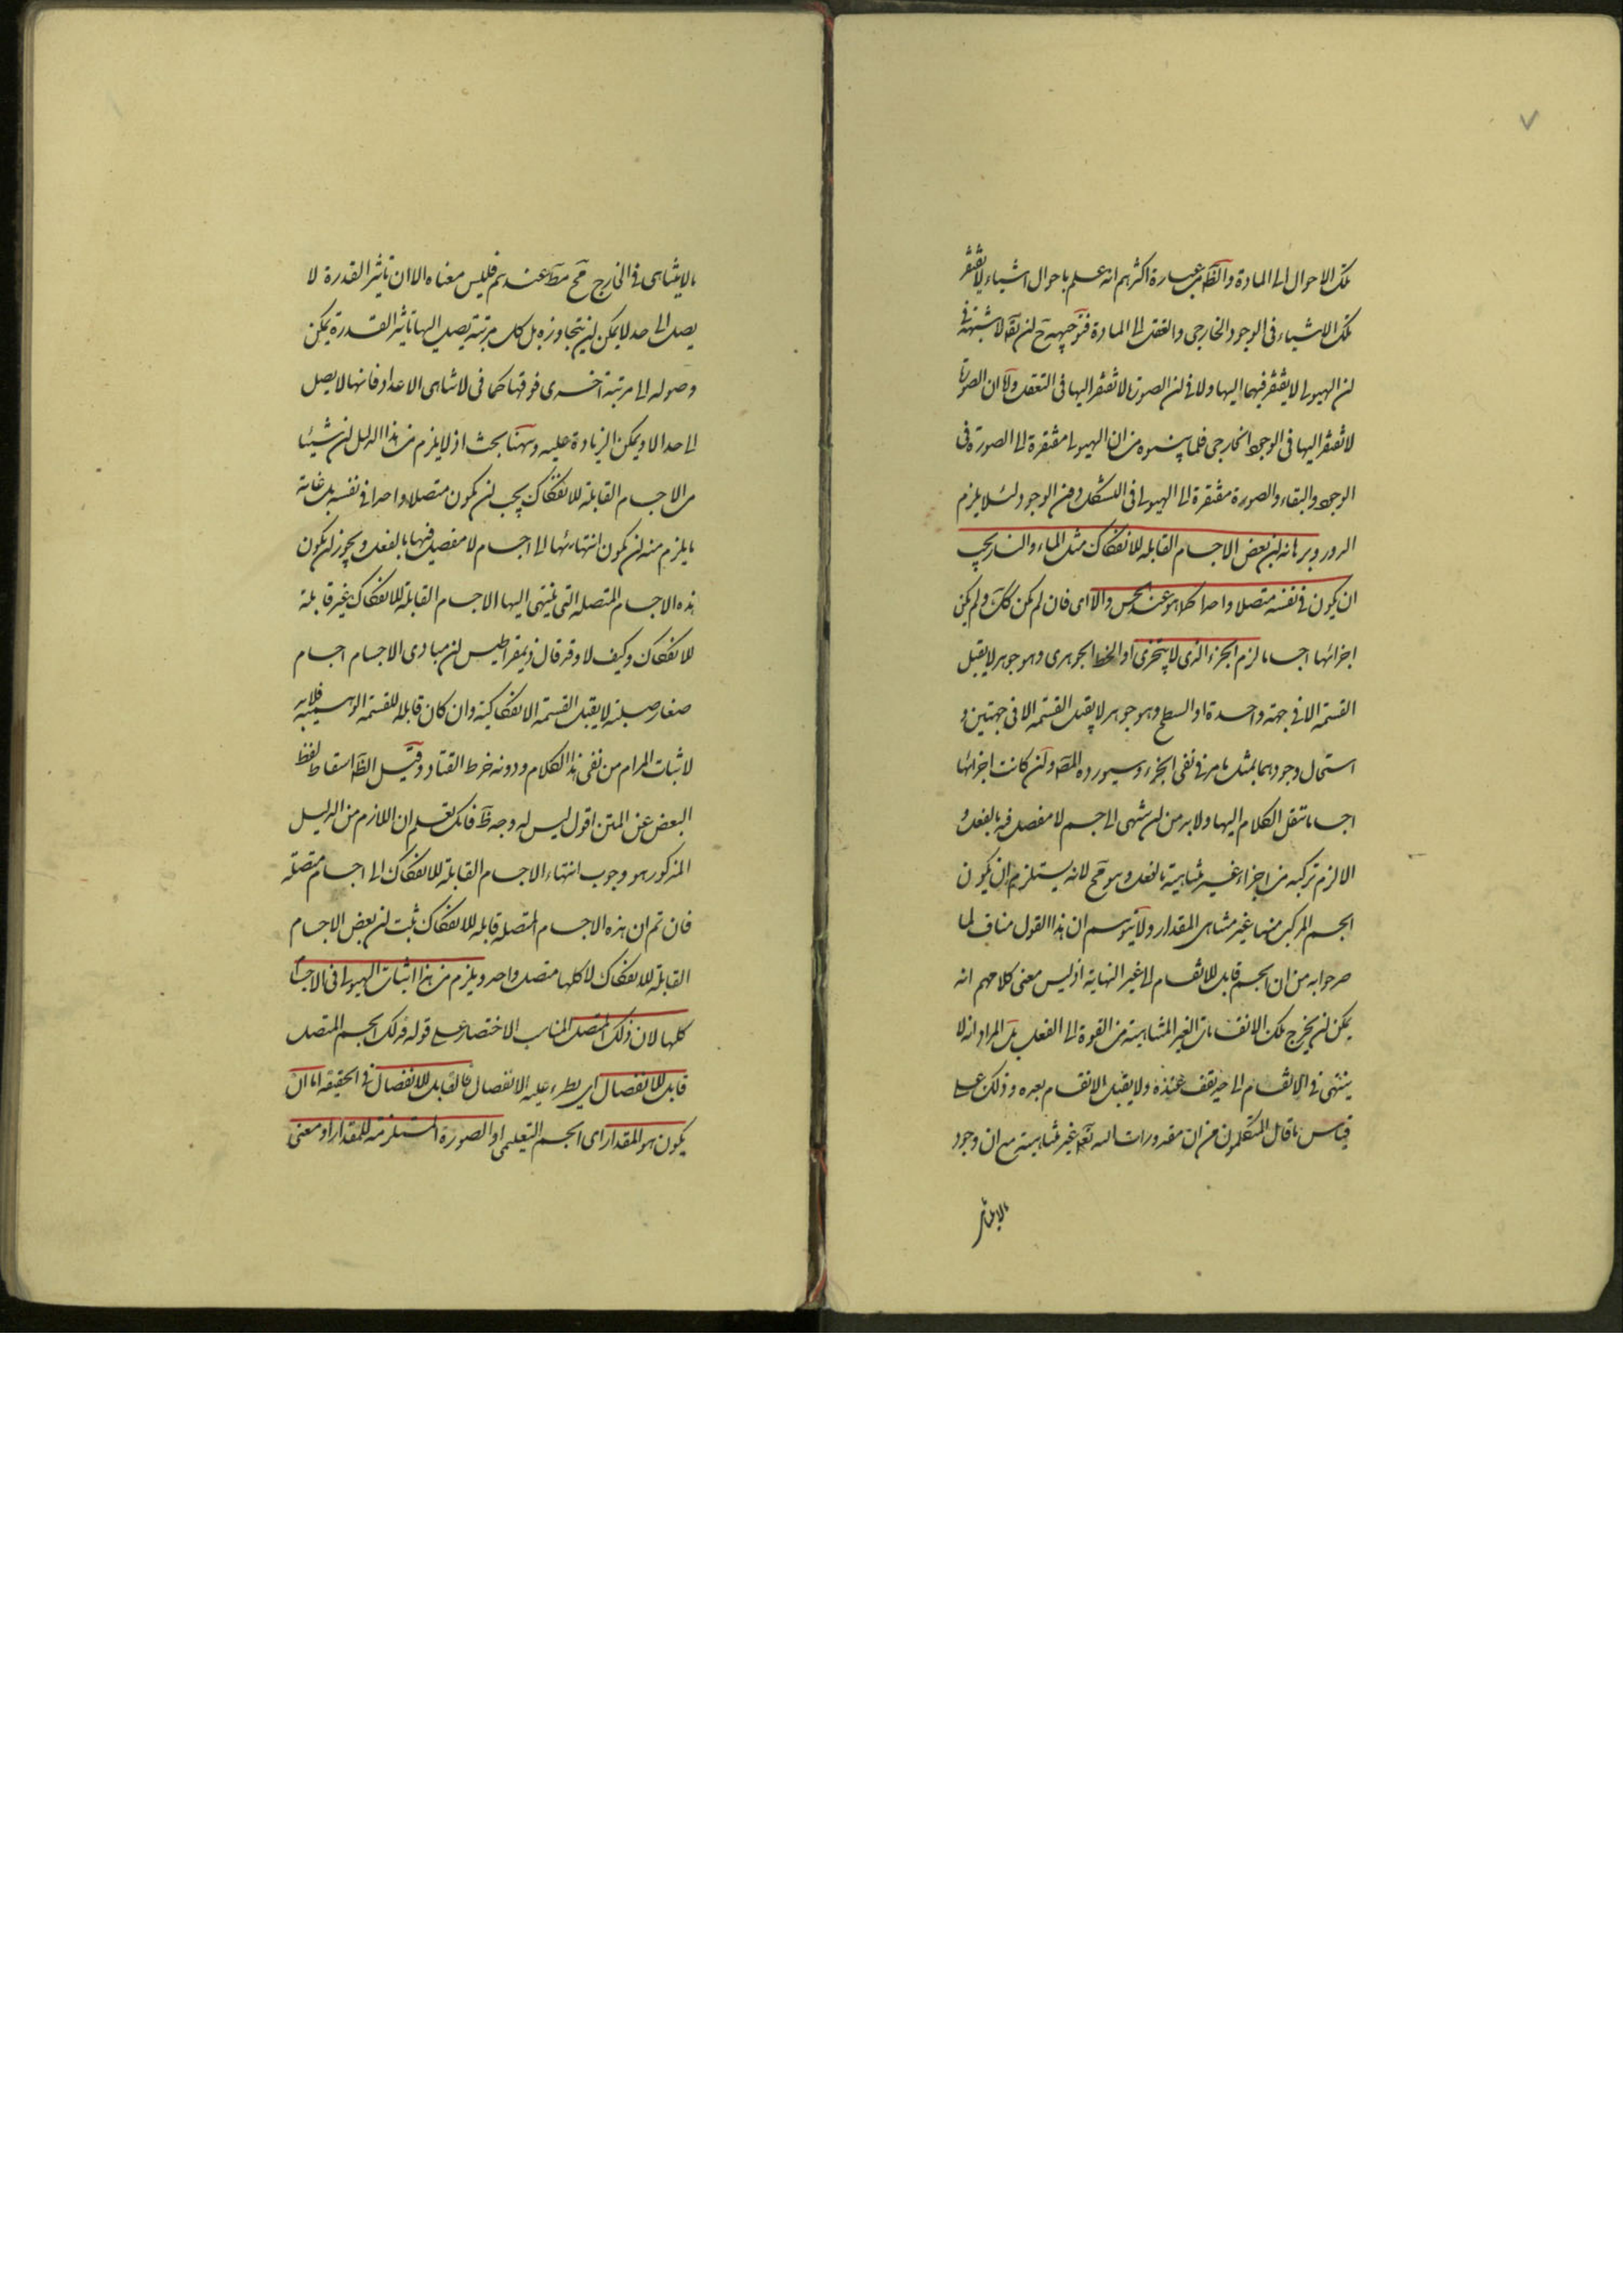 ٧
تلك الاحوال الى المادة والظ من عبارة اكثرهم انه علم باحوال اشياء لا يفتقر
تلك الاشياء فى الوجود الخارجى والتعقل الى المادة فتوجيهه ح ان يقال لا شبهة فى
ان الهيولى لا يفتقر فيهما اليها ولا فى ان الصورة لا تفتقر اليها فى التعقل ولا ان الصورة
لا تفتقر اليها فى الوجود الخارجى فلما بينوه من ان الهيولى مفتقرة الى الصورة فى
الوجود والبقاء والصورة مفتقرة الى الهيولى فى التشكل دون الوجود لئلا يلزم
الدور وبرهانه ان بعض الاجسام القابلة للانفكاك مثل الماء والنار يجب
ان يكون فى نفسه متصلا واحدا كما هو عند الحس والا اى فان لم يكن كك ولم يكن
اجزائها اجساما لزم الجزء الذى لا يتجزى او الخط الجوهرى وهو جوهر لا يقبل
القسمة الا فى جهة واحدة او السطح وهو جوهر لا يقبل القسمة الا فى جهتين و
استحال وجودهما بمثل ما مر فى نفى الجزء وسيورده المص وان كانت اجزائها
اجساما ننقل الكلام اليها ولا بد من ان تنتهى الى جسم لا مفصل فيه بالفعل و
الا لزم تركبه من اجزاء غير متناهية بالفعل وهو مح لانه يستلزم ان يكون
الجسم المركب منها غير متناهى المقدار ولا يتوهم ان هذا القول مناف لما
صرحوا به من ان الجسم قابل للانقسام الى غير النهاية اذ ليس معنى كلامهم انه
يمكن ان يخرج تلك الانقسامات الغير المتناهية من القوة الى الفعل بل المراد انه لا
ينتهى فى الانقسام الى حد يقف عنده ولا يقبل الانقسام بعده وذلك على
قياس ما قال المتكلمون من ان مقدورات الله تعالى غير متناهية مع ان وجود
ما لا يتناهى
ما لا يتناهى فى الخارج مح مط عندهم فليس معناه الا ان تاثير القدرة لا
يصل الى حد لا يمكن ان يتجاوزه بل كل مرتبة يصل اليها تاثير القدرة يمكن
وصوله الى مرتبة اخرى فوقها كما فى لا تناهى الاعداد فانها لا يصل
الى حد الا ويمكن الزيادة عليه وههنا بحث اذ لا يلزم من هذا الدليل ان شيئا
من الاجسام القابلة للانفكاك يجب ان يكون متصلا واحدا فى نفسه بل غاية
ما يلزم منه ان يكون انتهائها الى اجسام لا مفصل فيها بالفعل ويجوز ان يكون
هذه الاجسام المتصلة التى ينتهى اليها الاجسام القابلة للانفكاك غير قابلة
للانفكاك وكيف لا وقد قال ذيمقراطيس ان مبادى الاجسام اجسام
صغار صلبة لا يقبل القسمة الانفكاكية وان كان قابلة للقسمة الوهمية فلا بد
لاثبات المرام من نفى هذا الكلام ودونه خرط القتاد وقيل الظ اسقاط لفظ
البعض عن المتن اقول ليس له وجه ظ فانك تعلم ان اللازم من الدليل
المذكور هو وجوب انتهاء الاجسام القابلة للانفكاك الى اجسام متصلة
فان تم ان هذه الاجسام المتصلة قابلة للانفكاك ثبت ان بعض الاجسام
القابلة للانفكاك لا كلها متصل واحد ويلزم من هذا اثبات الهيولى فى الاجسام
كلها لان ذلك المتصل المناسب الاختصار على قوله فذلك الجسم المتصل
قابل للانفصال اى يطرء عليه الانفصال فالقابل للانفصال فى الحقيقة اما ان
يكون هو المقدار اى الجسم التعليمى او الصورة المستلزمة للمقدار او معنى